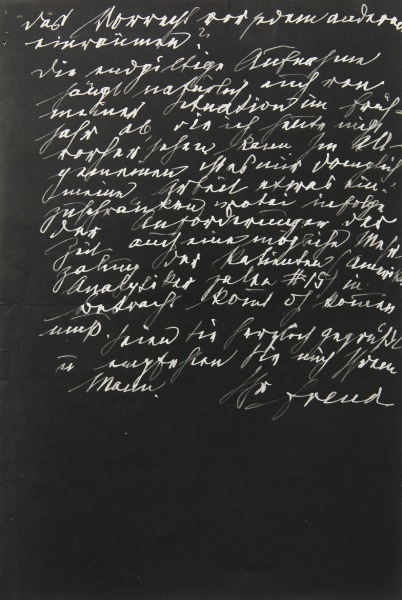 das Vorrecht vor jedem anderen
einräumen?
Die endgiltige Aufnahme
hängt natürlich auch von
meiner Situation im Früh-
jahr ab, die ich heute nicht
vorher sehen kann. Im All-
gemeinen ist es mir
meine Arbeit etwas ein-
zuschränken, wobei infolge
der Anforderungen der
Zeit auch eine mögliche
Zahlung des Patienten (Amerika
Analytiker zahlen $15) in
Betracht kommt oder kommen
muß.
Seien Sie herzlich gegrüßt
u empfehlen Sie mich Ihrem
Mann. Ihr Freud